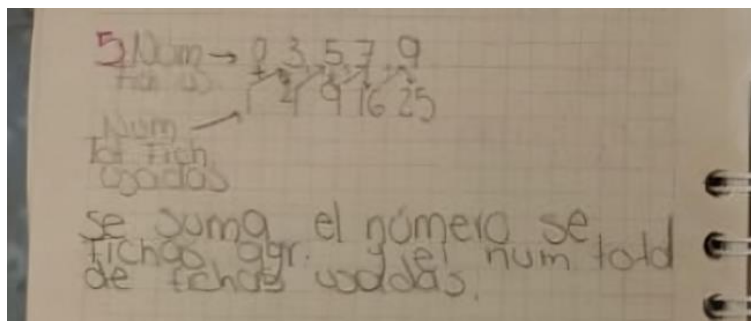 5 Num → 0 3 5 7 9
fich us.
1 4 9 16 25
Num
tot fich
usadas
se suma el número se
fichas agr. y el num total
de fichas usadas.